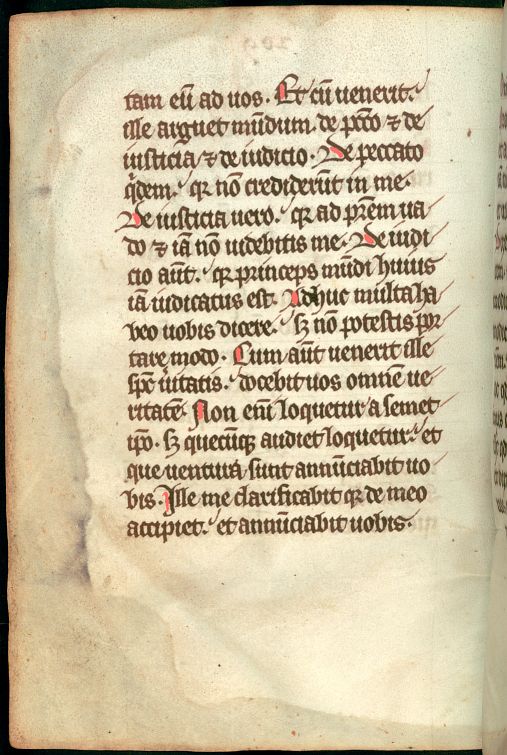 tam eū ad uos. Et cū uenerit.
ille arguet mūdum. de pc̄co ⁊ de
iusticia, ⁊ de iudicio. De peccato
q̇dem. qꝛ nō crediderūt in me.
De iusticia uero. qꝛ ad pr̄em ua
do ⁊ iā nō uidebitis me. De iudi
cio aūt. qꝛ princeps mūdi huius
iā iudicatus est. Adhuc multa ha
beo uobis dicere. sꝫ nō potestis por
tare modo. Cum aūt uenerit ille
sp̄c ūitatis. docebit uos omnē ue
ritatē. Non eni̅ loquetur a semet
ip̄o. sꝫ quecūqꝫ audiet loquetur. et
que uentura sunt annūciabit uo
bis. Ille me clarificabit qꝛ de meo
accipiet. et annūciabit uobis.